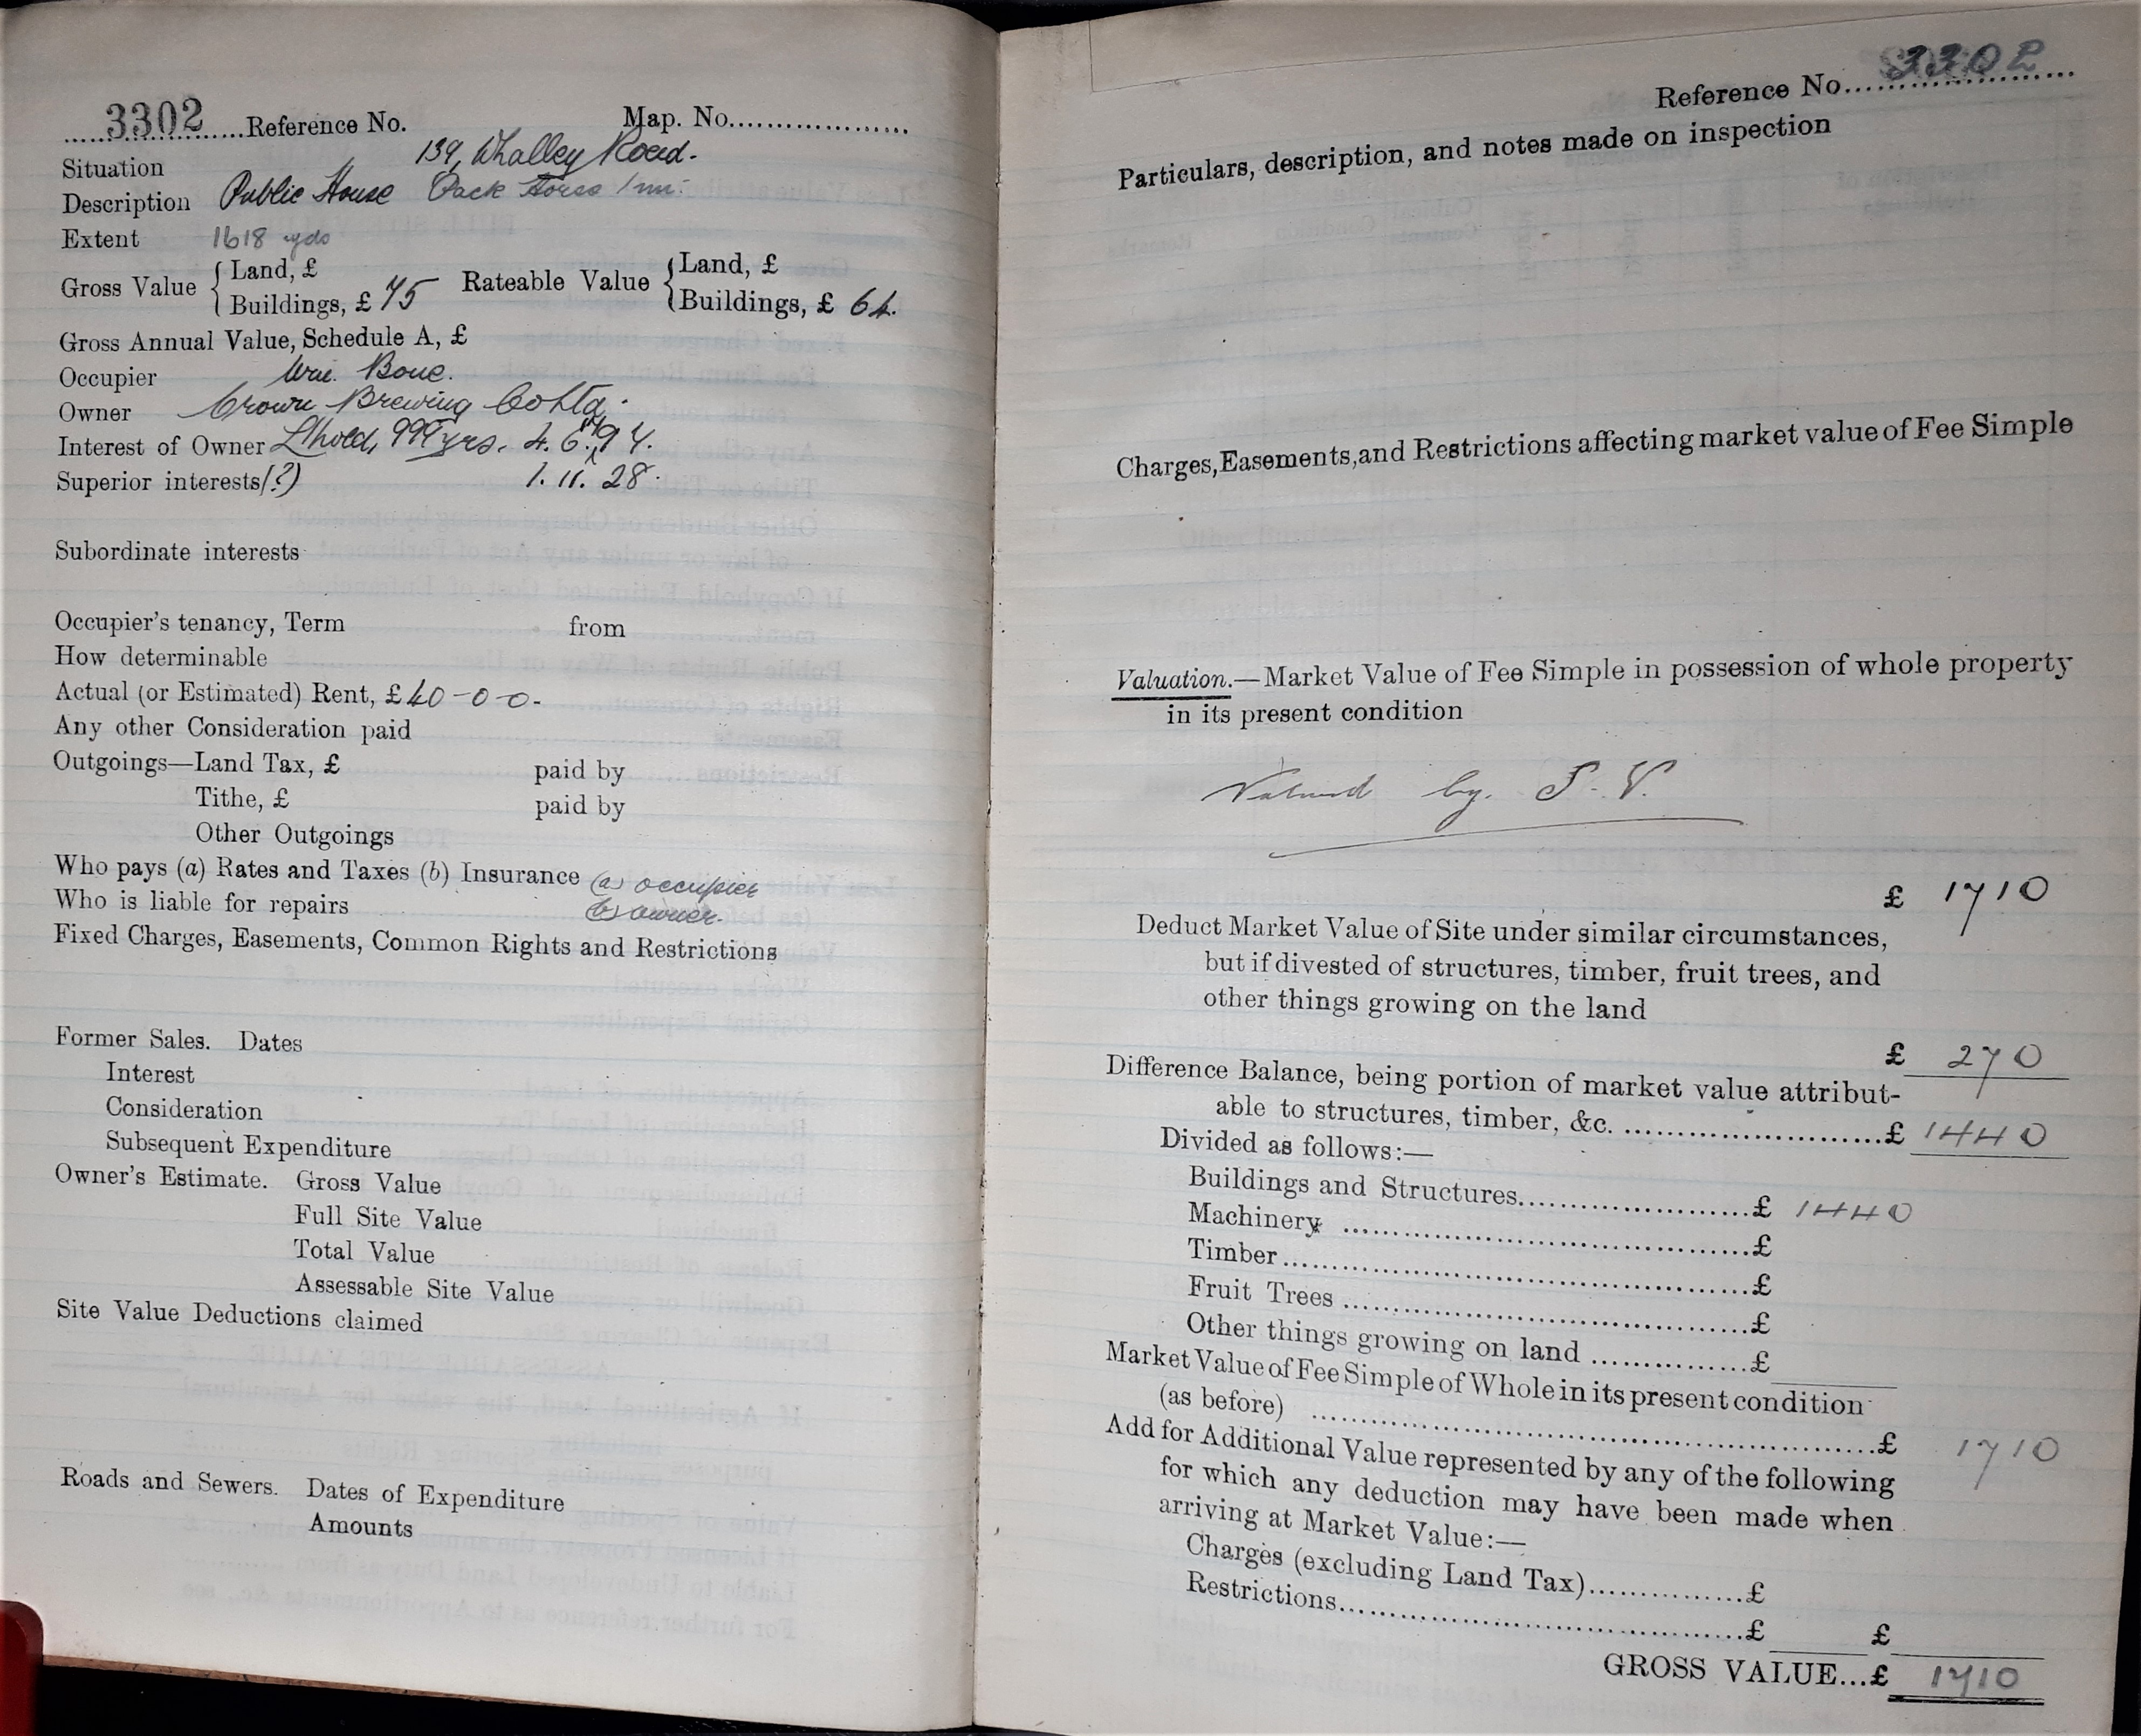 3302 Reference No. Map. No.
Situation 139, Whalley Road.
Description Public House Pack Horse Inn.
Extent 1618 yds
Gross Value { Land, £ Rateable Value { Land, £
Buildings, £ 75 Buildings, £ 64.
Gross Annual Value, Schedule A, £
Occupier Wm. Bone.
Owner Crown Brewing Co Ltd.
Interest of Owner L'hold, 999 yrs. 4. 6. 94.
Superior interests (?) 1. 11. 28.
Subordinate interests
Occupier's tenancy, Term from
How determinable
Actual (or Estimated) Rent, £40-0-0.
Any other Consideration paid
Outgoings—Land Tax, £ paid by
Tithe, £ paid by
Other Outgoings
Who pays (a) Rates and Taxes (b) Insurance (a) occupier
Who is liable for repairs (b) owner.
Fixed Charges, Easements, Common Rights and Restrictions
Former Sales. Dates
Interest
Consideration
Subsequent Expenditure
Owner's Estimate. Gross Value
Full Site Value
Total Value
Assessable Site Value
Site Value Deductions claimed
Roads and Sewers. Dates of Expenditure
Amounts
Reference No. 3302
Particulars, description, and notes made on inspection
Charges, Easements, and Restrictions affecting market value of Fee Simple
Valuation.—Market Value of Fee Simple in possession of whole property
in its present condition
Valued by. S. V.
£ 1710
Deduct Market Value of Site under similar circumstances,
but if divested of structures, timber, fruit trees, and
other things growing on the land
£ 270
Difference Balance, being portion of market value attribut-
able to structures, timber, &c. £ 1440
Divided as follows:—
Buildings and Structures £ 1440
Machinery £
Timber £
Fruit Trees £
Other things growing on land £
Market Value of Fee Simple of Whole in its present condition
(as before) £ 1710
Add for Additional Value represented by any of the following
for which any deduction may have been made when
arriving at Market Value:—
Charges (excluding Land Tax) £
Restrictions £ £
GROSS VALUE...£ 1710